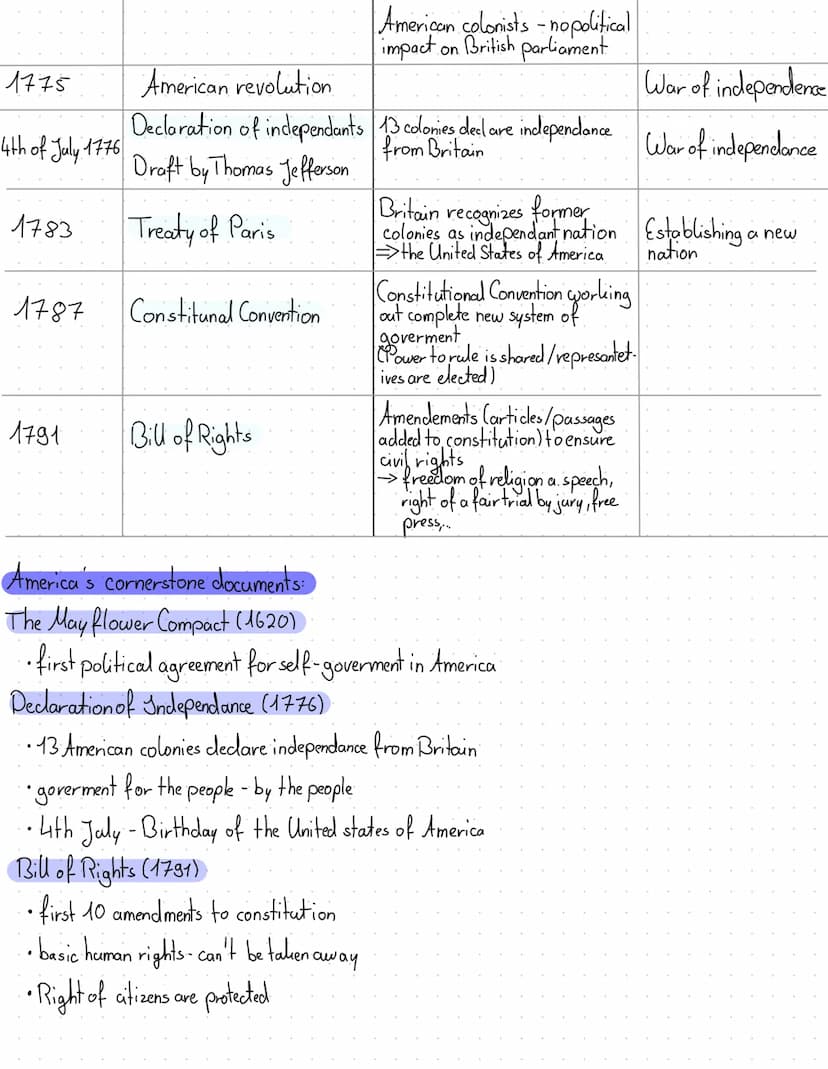 American colonists - no political
impact on British parliament
1775 American revolution War of independence
4th of July 1776 Declaration of independants 13 colonies declare independance War of independance
Draft by Thomas Jefferson from Britain
1783 Treaty of Paris Britain recognizes former Establishing a new
colonies as independant nation nation
⇒ the United States of America
1787 Constitunal Convention Constitutional Convention working
out complete new system of
goverment
(Power to rule is shared/represantet-
ives are elected)
1791 Bill of Rights Amendements (articles/passages
added to constitution) to ensure
civil rights
→ freedom of religion a. speech,
right of a fair trial by jury, free
press,..
America's cornerstone documents:
The Mayflower Compact (1620)
· first political agreement for self-goverment in America
Declaration of Independance (1776)
· 13 American colonies declare independance from Britain
· goverment for the people - by the people
· 4th July - Birthday of the United states of America
Bill of Rights (1791)
· first 10 amendments to constitution
· basic human rights - can't be taken away
· Right of citizens are protected